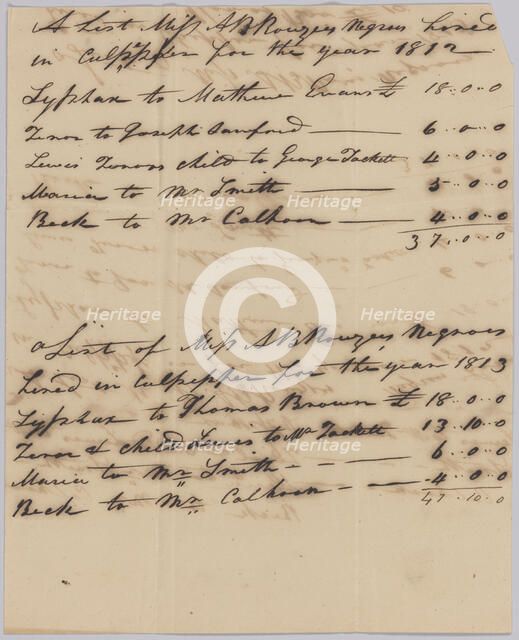 A List Miss A B Rouzees Negroes hired
in Culpepper for the year 1812
Syphax to Mathew Evans £ 18..0..0
Zenor to Joseph Sanford 6..0..0
Lewis Zenors child to George Tackett 4..0..0
Maria to Mr Smith 5..0..0
Beck to Mr Calhoon 4..0..0
37..0..0
a List of Miss A B Rouzees Negroes
hired in Culpepper for the year 1813
Syphax to Thomas Brown £ 18..0..0
Zenor & child Lewis to Mr Tackett 13..10..0
Maria to Mr Smith 6..0..0
Beck to Mr Calhoon 4..0..0
47..10..0